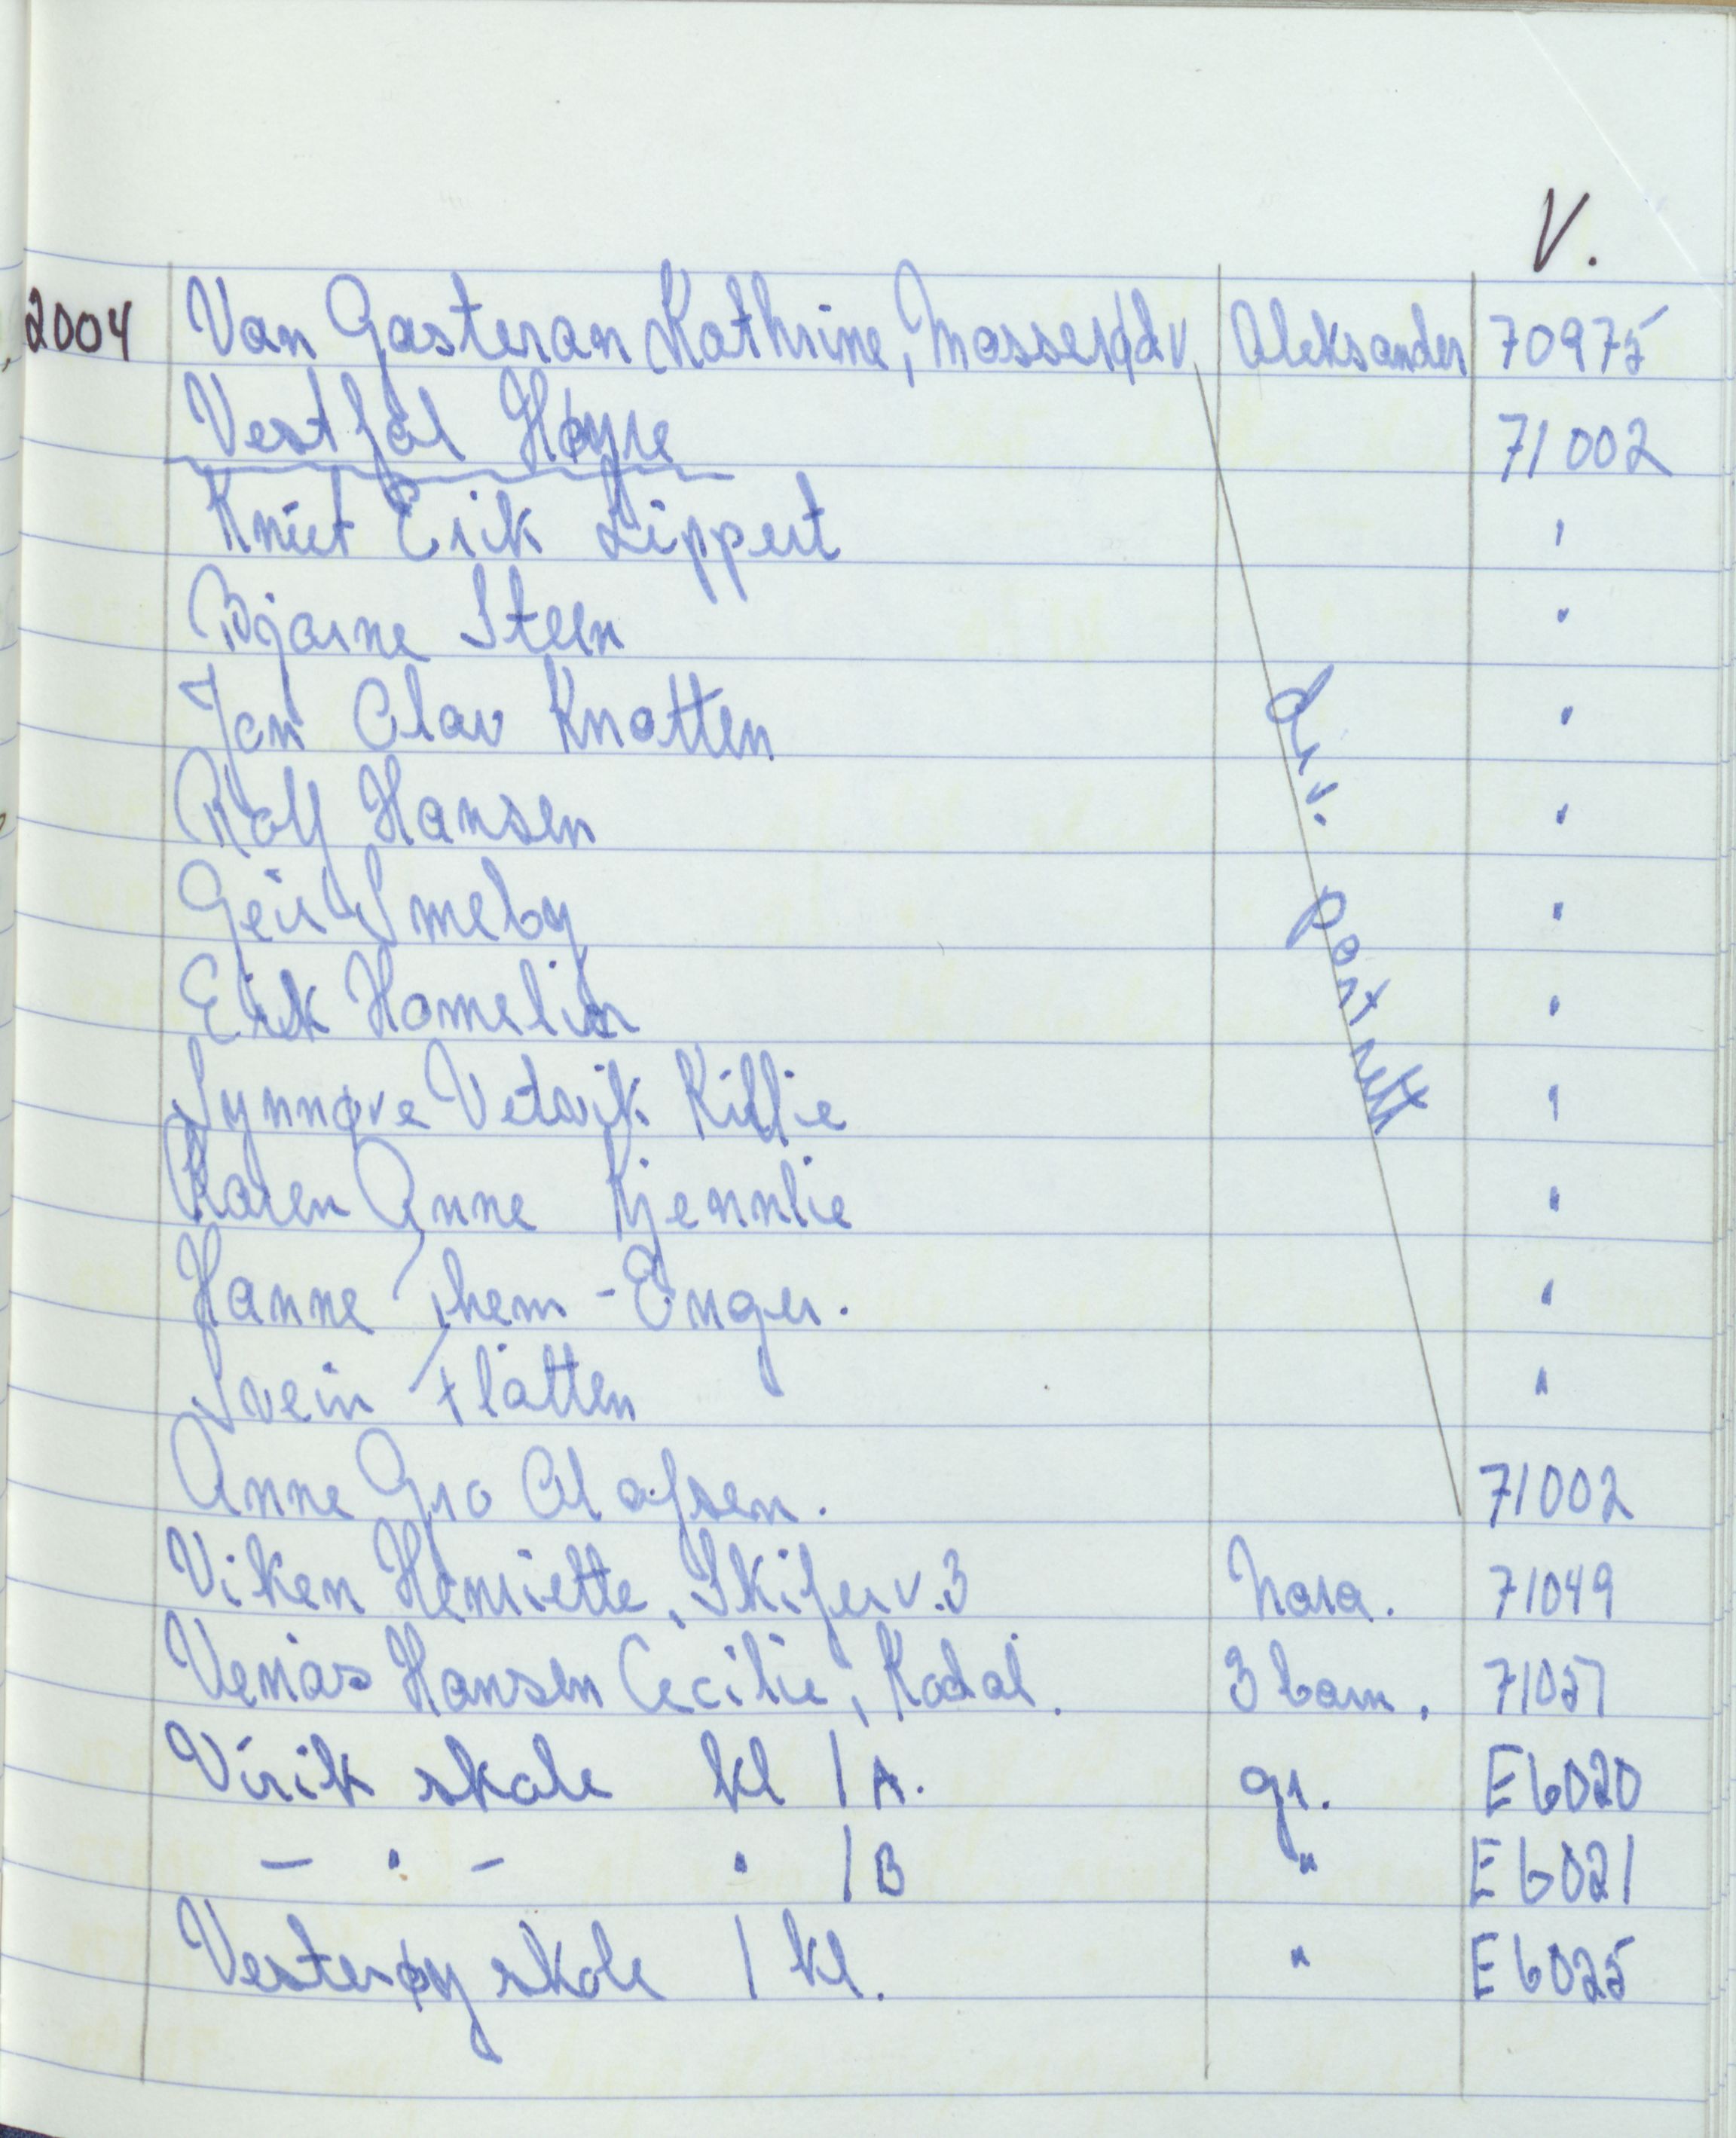 V.
2004 Van Gasteran Kathrine, Masserødv Aleksander 70975
Vestfol Høyre 71002
Knut Erik Lippert "
Bjarne Steen "
Jan Olav Knatten "
Rolf Hansen "
Geir Smeby "
Erik Hamelin "
Synnøve Vetvik Killie "
Karen Anne Kjennlie "
Hanne Them-Enger. "
Svein Flåtten "
div. portrett
Anne Gro Olafsen. 71002
Viken Henriette, Skiferv.3 Nora. 71049
Hansen Cecilie, Kodal. 3 barn.
Virik skole kl 1 A. gr. E6020
– " – " 1 B " E6021
Vesterøy skole 1 kl. " E6025